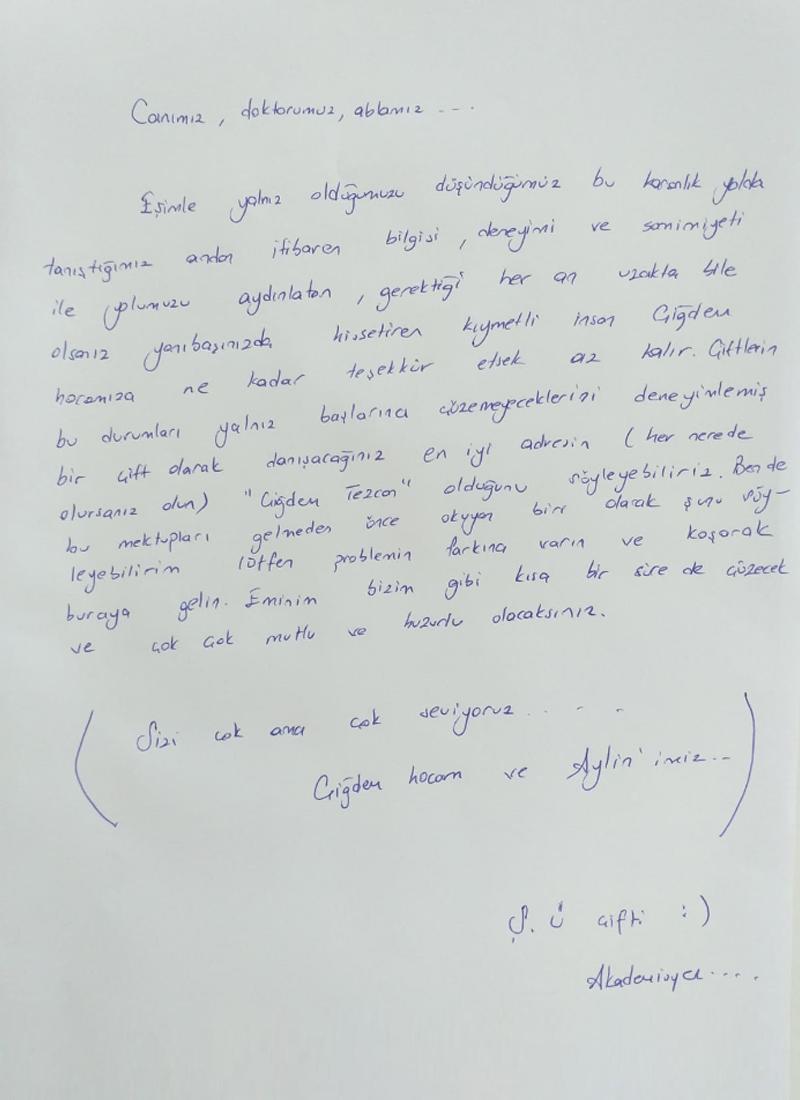 Canımız, doktorumuz, ablamız ---.
Eşimle yalnız olduğumuzu düşündüğümüz bu karanlık yolda
tanıştığımız andan itibaren bilgisi, deneyimi ve samimiyeti
ile yolumuzu aydınlatan, gerektiği her an uzakta bile
olsanız yanıbaşınızda hissetiren kıymetli insan Çiğdem
hocamıza ne kadar teşekkür etsek az kalır. Çiftlerin
bu durumları yalnız başlarına çözemeyeceklerini deneyimlemiş
bir çift olarak danışacağınız en iyi adresin (her nerede
olursanız olun) "Çiğdem Tezcan" olduğunu söyleyebiliriz. Ben de
bu mektupları gelmeden önce okuyan biri olarak şunu söy-
leyebilirim lütfen problemin farkına varın ve koşarak
buraya gelin. Eminim bizim gibi kısa bir süre de çözecek
ve çok çok mutlu ve huzurlu olacaksınız.
(Sizi çok ama çok seviyoruz . . - -
Çiğdem hocam ve Aylin'imiz..-)
Ş. Ü çifti :)
Akademisyen....